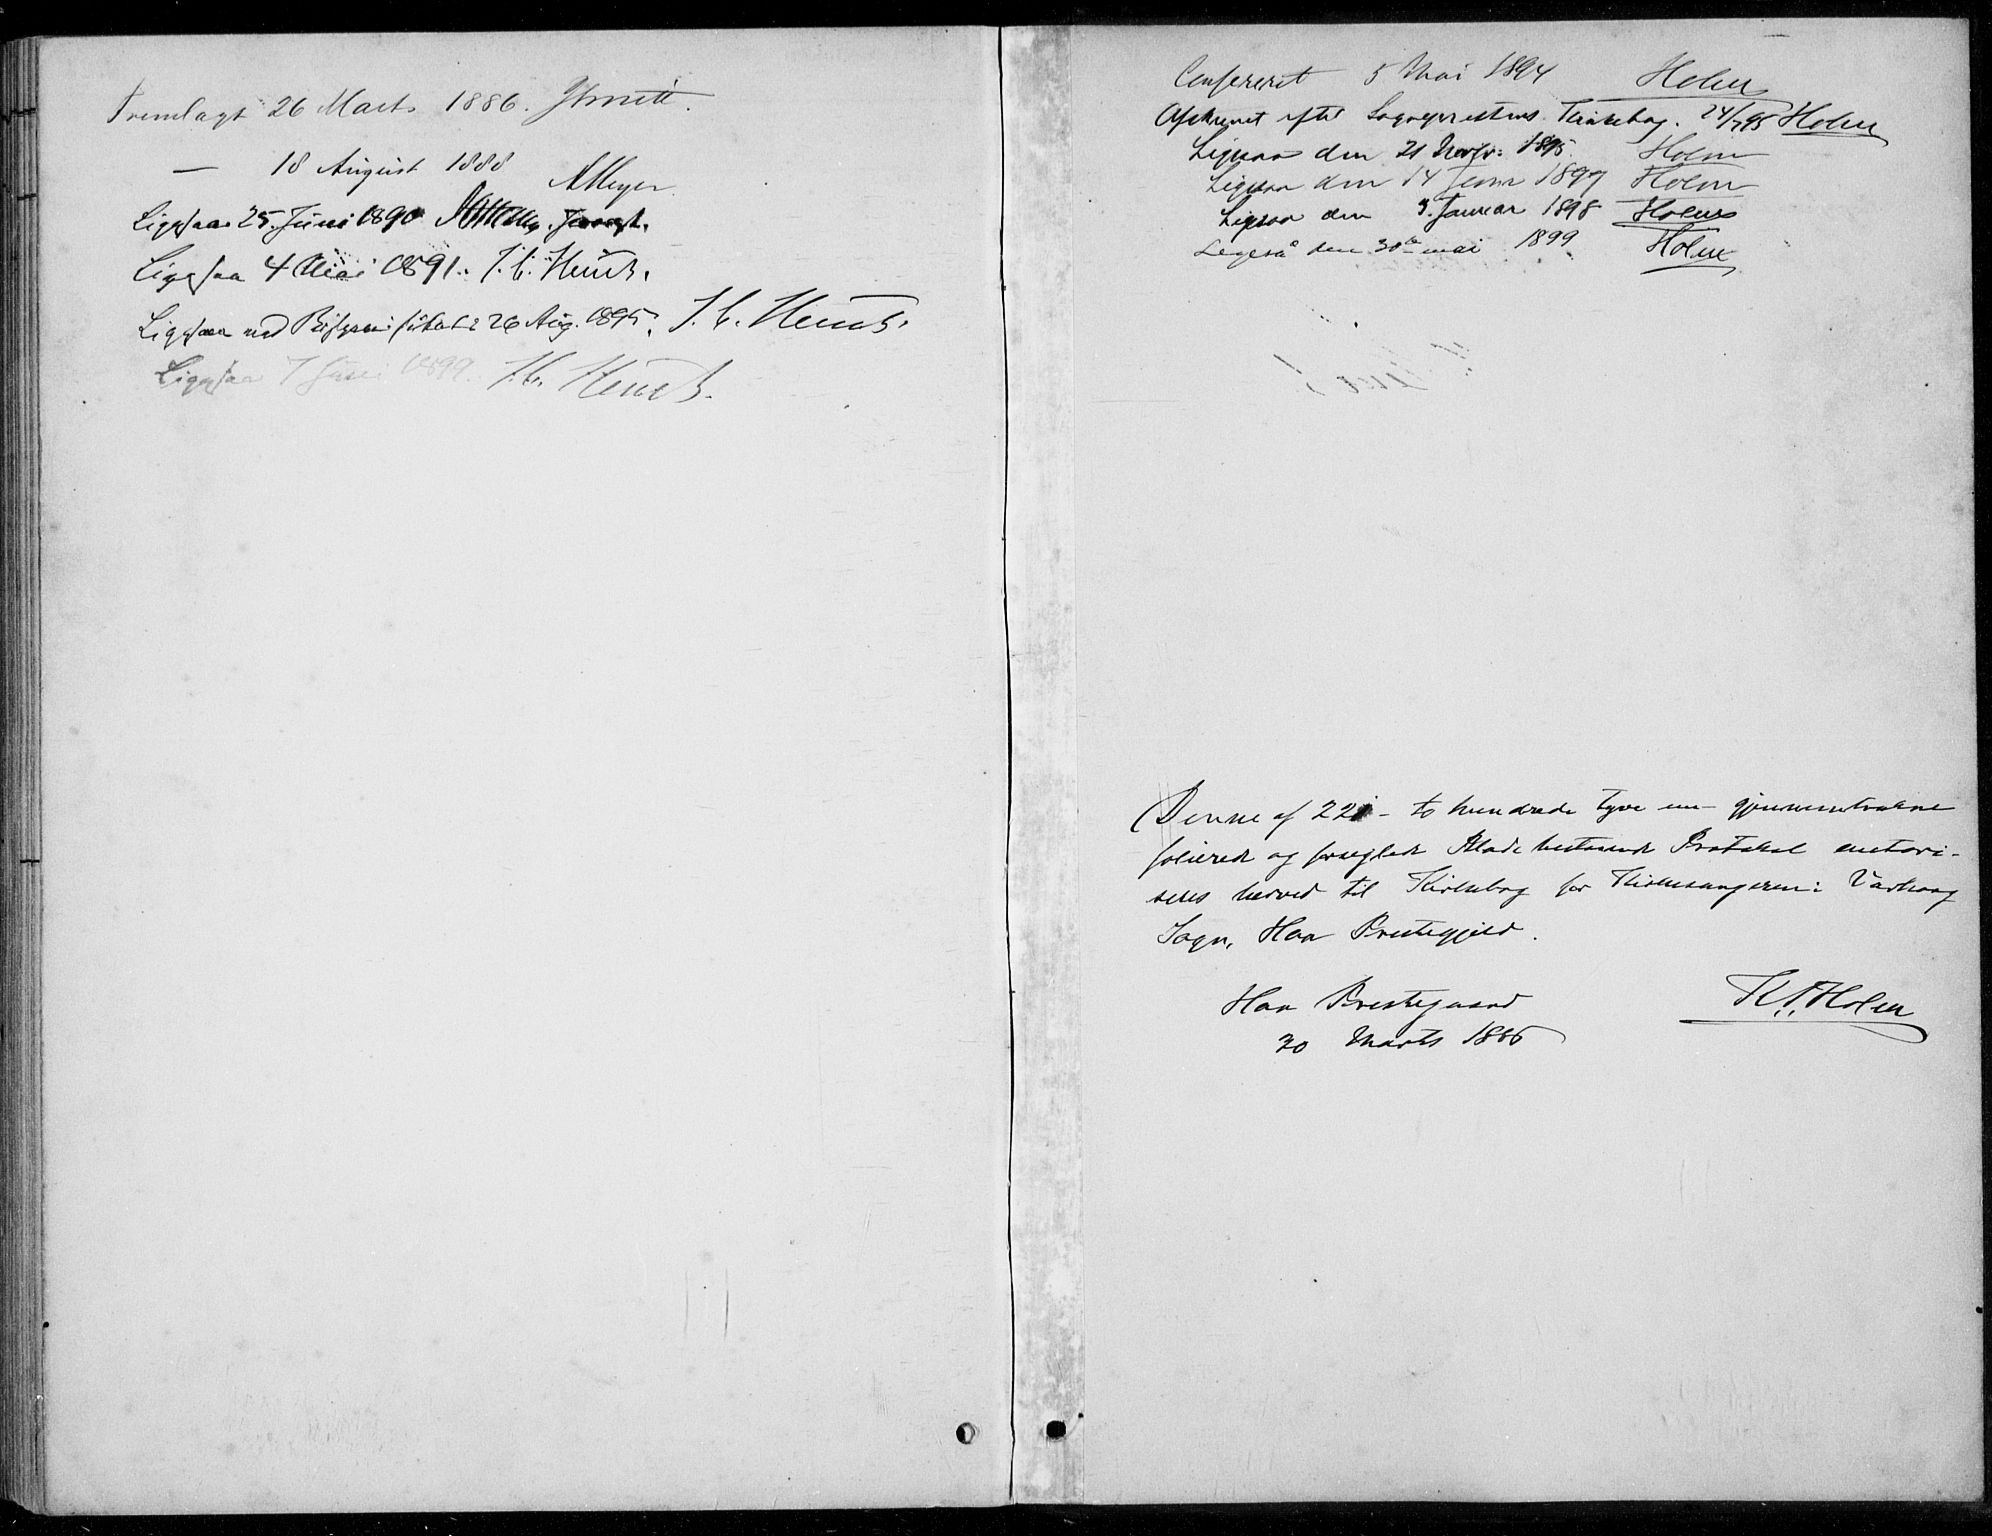 Fremlagt 26 Marts 1886.
— 18 August 1888
AMeyer
Ligesaa 25. Juni 1890
Ligesaa 4 Mai 1891. J. C. Heuch.
Ligesaa ved Bispevisitats 26 Aug. 1895. J. C. Heuch.
Ligesaa 7 Juni 1899. J. C. Heuch.
Confereret 5 Mai 1894 Holm
Afskrevet efter Sogneprestens Kirkebog. 24/7 95 Holm
Ligesaa den 21 Novbr: 1895. Holm
Ligesaa den 14 1897 Holm
Ligesaa den 3. Januar 1898 Holm
Ligeså den 30te mai 1899. Holm
Denne af 221 - to hundrede tyve en - gjennemtrukne
folierede og forseglede Blade bestaaende Protokol autori-
seres herved til Kirkebog for Kirkesangeren i Varhaug
Sogn, Haa Prestegjeld.
Haa Prestegaard
30 Marts 1886
K. Holm